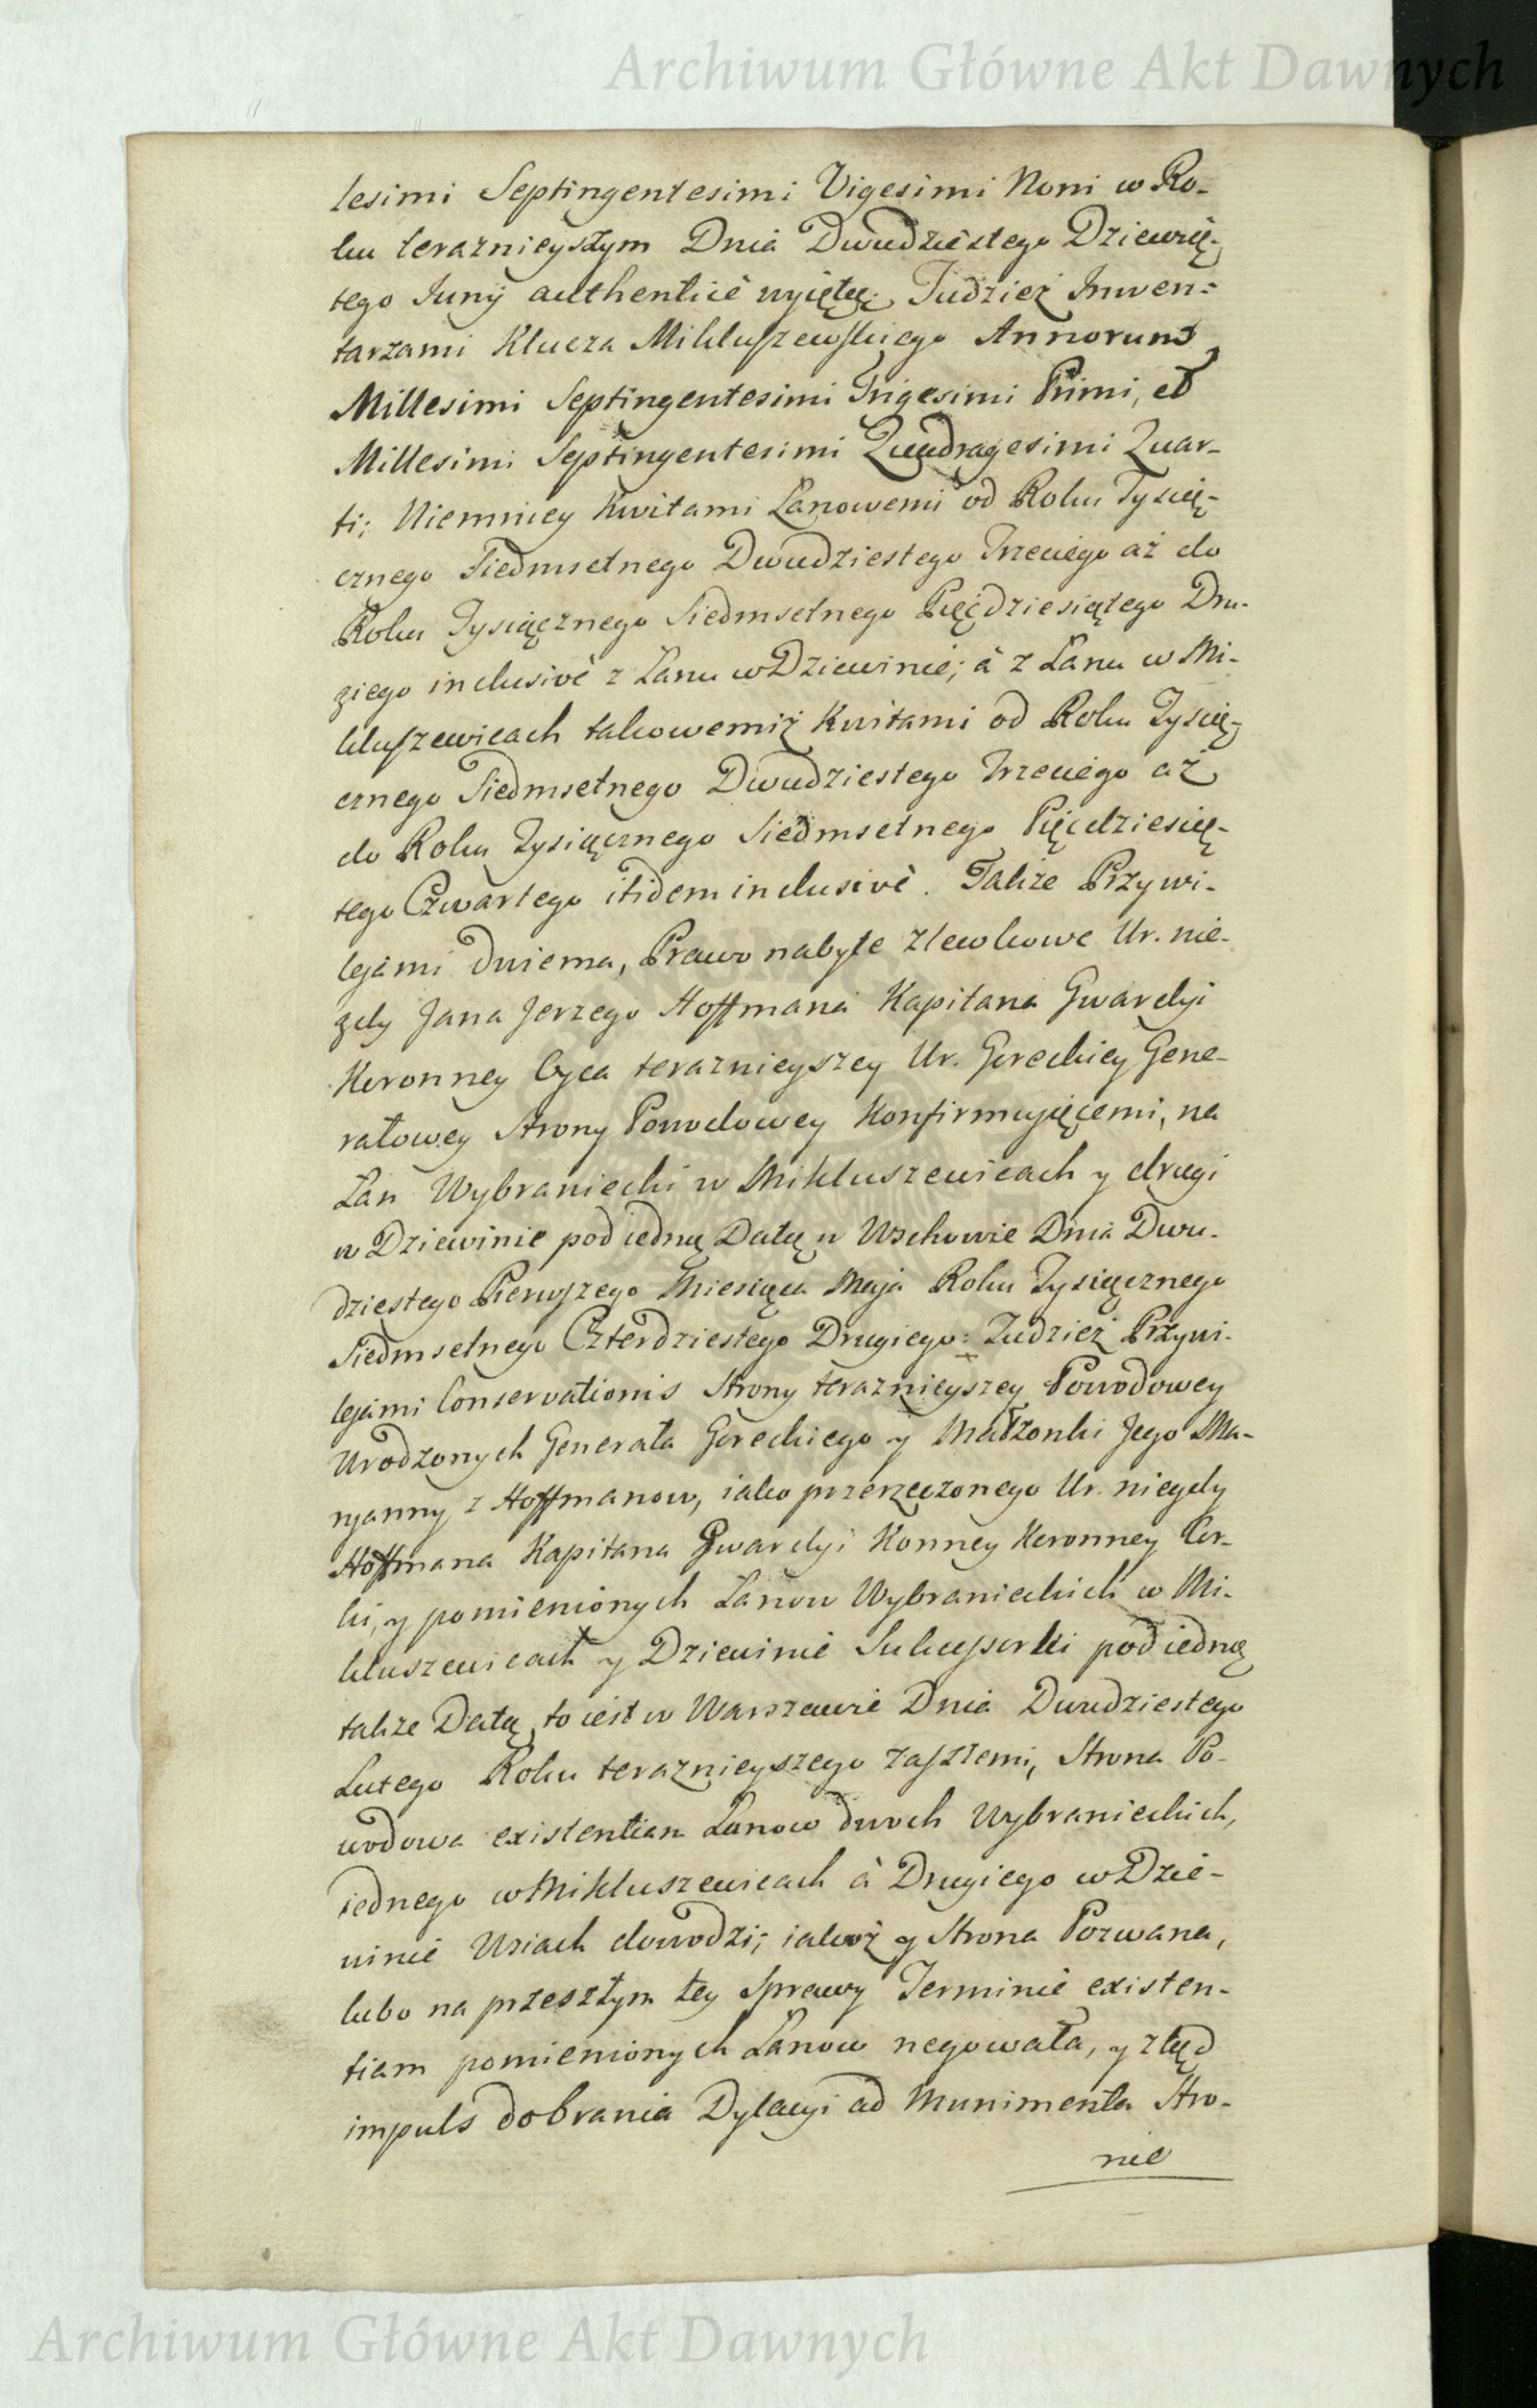 Archiwum Główne Akt Dawnych
lesimi Septingentesimi Vigesimi Noni w Ro-
ku teraznieyszym Dnia Dwudziestego Dziewią-
tego Juny authenticè wyiętą; Tudzież Inwen-
tarzami Klucza Mikluszewskiego Annorum
Millesimi Septingentesimi Trigesimi Primi, et
Millesimi Septingentesimi Quadragesimi Quar-
ti; Niemniey Kwitami Łanowemi od Roku Tysią-
cznego Siedmsetnego Dwudziestego Trzeciego aż do
Roku Tysiącznego Siedmsetnego Pięćdziesiątego Dru-
giego inclusivè z Łanu w Dziewinie; à z Łanu w Mi-
kluszewicach takowemiż Kwitami od Roku Tysią-
cznego Siedmsetnego Dwudziestego Trzeciego aż
do Roku Tysiącznego Siedmsetnego Pięcdziesią-
tego Czwartego itidem inclusivè. Także Przywi-
lejami dwiema, Prawo nabyte Ur. nie-
gdy Jana Jerzego Hoffmana Kapitana Gwardyi
Koronney Oyca teraznieyszey Ur. Goreckiey Gene-
rałowey Strony Powodowey Konfirmuiącemi, na
Łan Wybraniecki w Mikluszewicach y drugi
w Dziewinie pod iedną Datą w Wschowie Dnia Dwu-
dziestego Pierwszego Miesiąca Maja Roku Tysiącznego
Siedmsetnego Czterdziestego Drugiego: Tudzież Przywi-
lejami Conservationis Strony teraznieyszey Powodowey
Urodzonych Generała Goreckiego y Małżonki Jego Ma-
ryanny z Hoffmanow, iako przerzeczonego Ur. niegdy
Hoffmana Kapitana Gwardyi Konney Koronney Cor-
ki, y pomienionych Łanow Wybranieckich w Mi-
kluszewicach y Dziewinie Sukcessorki pod iedną
także Datą, to iest w Warszawie Dnia Dwudziestego
Lutego Roku teraznieyszego zaszłemi, Strona Po-
wodowa existentiam Łanow dwoch Wybranieckich,
iednego w Mikluszewicach à Drugiego w Dzie-
winie Wsiach dowodzi; iakoż y Strona Pozwana,
lubo na przeszłym tey Sprawy Terminie existen-
tiam pomienionych Łanow negowała, y ztąd
impuls dobrania Dylacyi ad Munimenta Stro-
nie
Archiwum Główne Akt Dawnych